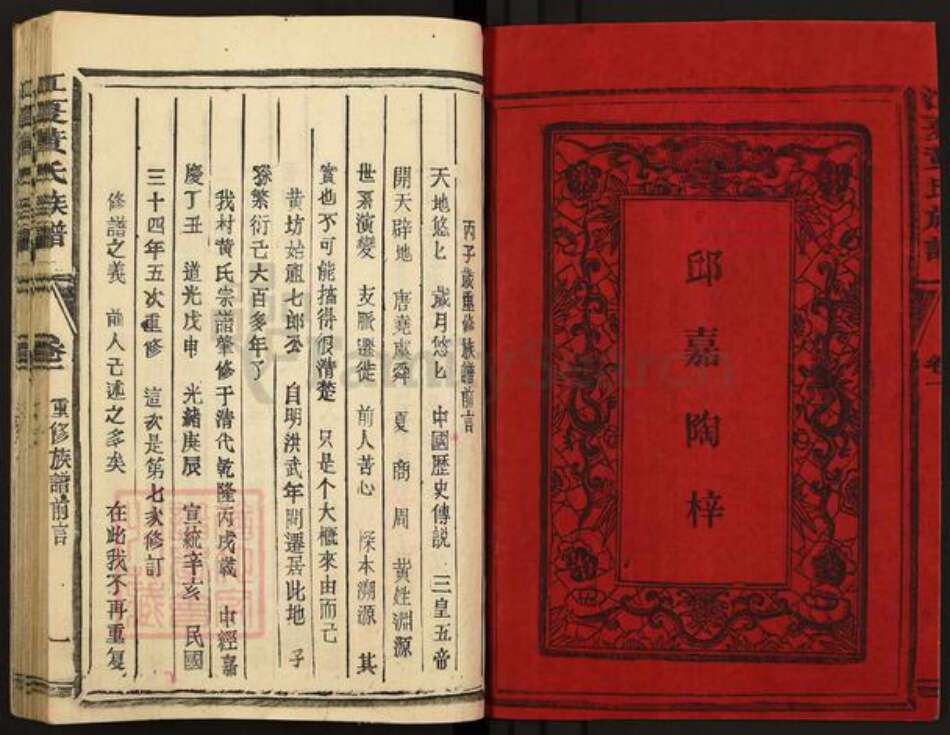 邱嘉陶梓
江夏黃氏族譜
卷一
丙子歲重修族譜前言
天地悠匕 歲月悠匕 中國歷史傳説 三皇五帝
開天辟地 唐堯虞舜 夏 商 周 黃姓淵源
世系演變 支脈遷徙 前人苦心 探本溯源 其
實也不可能搞得很清楚 只是个大概來由而已
黃坊始祖七郎公 自明洪武年間遷居此地 子
孫繁衍已六百多年了
我村黃氏宗譜肇修于清代乾隆丙戌歲 中經嘉
慶丁丑 道光戊申 光緒庚辰 宣統辛亥 民國
三十四年五次重修 這次是第七次修訂
修譜之義 前人已述之多矣 在此我不再重复
江夏黃氏族譜
卷一
重修族譜前言
一
FamilySearch